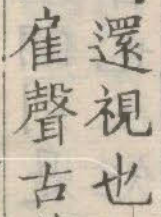 還視也
雇聲古